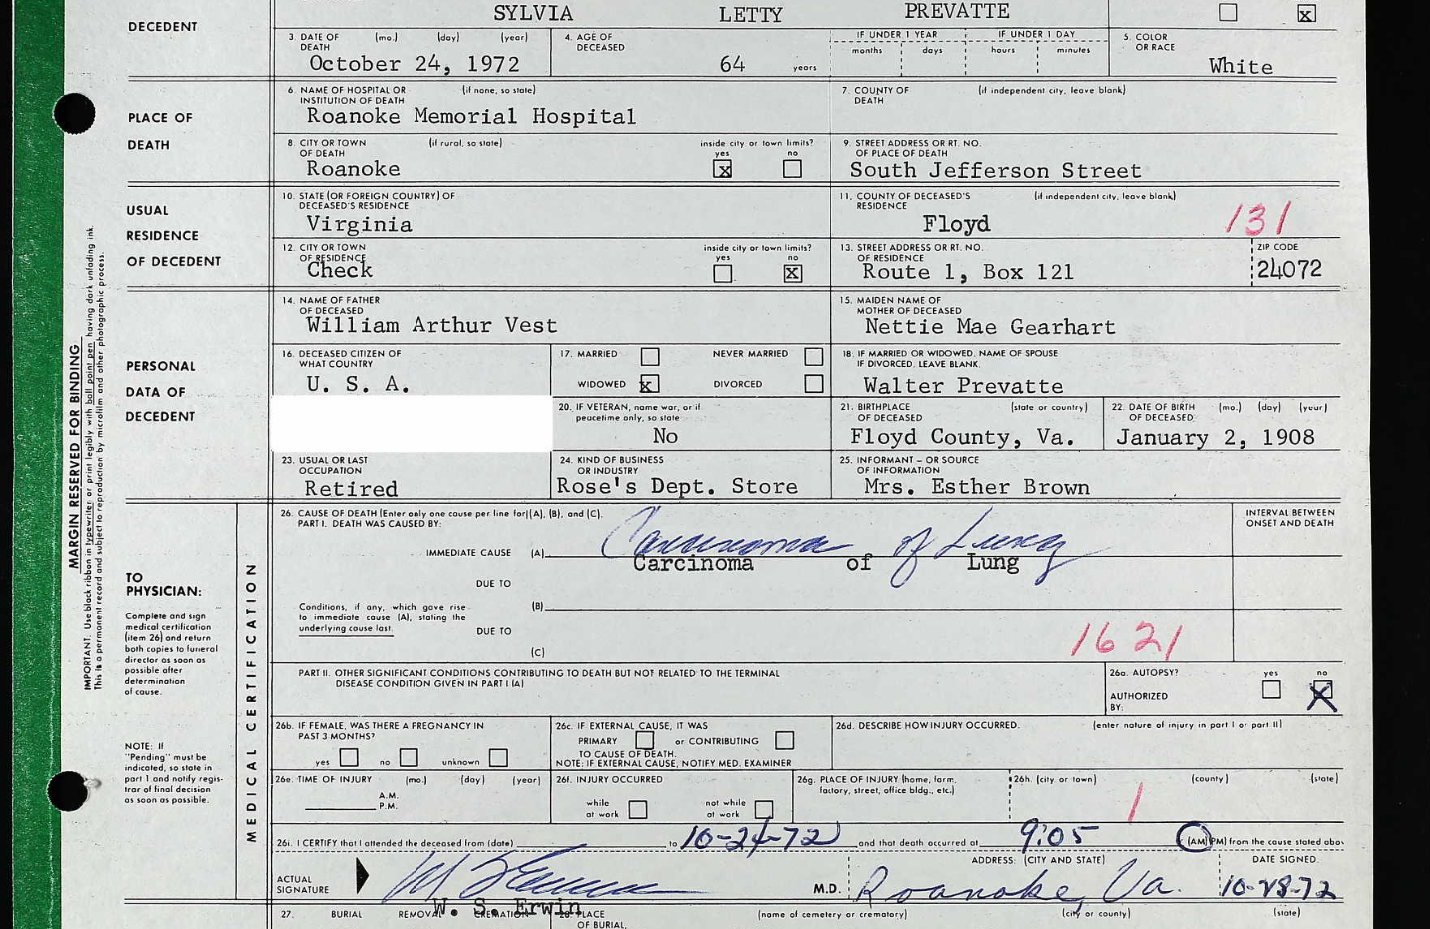 DECEDENT
SYLVIA LETTY PREVATTE
x
3. DATE OF DEATH (mo.) (day) (year)
October 24, 1972
4. AGE OF DECEASED
64 years
IF UNDER 1 YEAR IF UNDER 1 DAY
months days hours minutes
5. COLOR OR RACE
White
PLACE OF DEATH
6. NAME OF HOSPITAL OR INSTITUTION OF DEATH (if none, so state)
Roanoke Memorial Hospital
7. COUNTY OF DEATH (if independent city, leave blank)
8. CITY OR TOWN OF DEATH (if rural, so state)
Roanoke
inside city or town limits?
yes no
x
9. STREET ADDRESS OR RT. NO. OF PLACE OF DEATH
South Jefferson Street
USUAL RESIDENCE OF DECEDENT
10. STATE (OR FOREIGN COUNTRY) OF DECEASED'S RESIDENCE
Virginia
11. COUNTY OF DECEASED'S RESIDENCE (if independent city, leave blank)
Floyd
131
12. CITY OR TOWN OF RESIDENCE
Check
inside city or town limits?
yes no
x
13. STREET ADDRESS OR RT. NO. OF RESIDENCE
Route 1, Box 121
ZIP CODE
24072
PERSONAL DATA OF DECEDENT
14. NAME OF FATHER OF DECEASED
William Arthur Vest
15. MAIDEN NAME OF MOTHER OF DECEASED
Nettie Mae Gearhart
16. DECEASED CITIZEN OF WHAT COUNTRY
U. S. A.
17. MARRIED NEVER MARRIED
WIDOWED x DIVORCED
18. IF MARRIED OR WIDOWED, NAME OF SPOUSE
IF DIVORCED, LEAVE BLANK.
Walter Prevatte
20. IF VETERAN, name war, or if peacetime only, so state
No
21. BIRTHPLACE OF DECEASED (state or country)
Floyd County, Va.
22. DATE OF BIRTH OF DECEASED (mo.) (day) (year)
January 2, 1908
23. USUAL OR LAST OCCUPATION
Retired
24. KIND OF BUSINESS OR INDUSTRY
Rose's Dept. Store
25. INFORMANT – OR SOURCE OF INFORMATION
Mrs. Esther Brown
MARGIN RESERVED FOR BINDING
IMPORTANT: Use black ribbon in typewriter or print legibly with ball point pen having dark unfading ink.
This is a permanent record and subject to reproduction by microfilm and other photographic process.
TO PHYSICIAN:
Complete and sign
medical certification
(item 26) and return
both copies to funeral
director as soon as
possible after
determination
of cause.
NOTE: If
"Pending" must be
indicated, so state in
part 1 and notify regis-
trar of final decision
as soon as possible.
MEDICAL CERTIFICATION
26. CAUSE OF DEATH (Enter only one cause per line for (A), (B), and (C).
PART I. DEATH WAS CAUSED BY:
INTERVAL BETWEEN ONSET AND DEATH
IMMEDIATE CAUSE (A)
Carcinoma of Lung
Carcinoma of Lung
DUE TO
(B)
Conditions, if any, which gave rise
to immediate cause (A), stating the
underlying cause last.
DUE TO
(C)
1621
PART II. OTHER SIGNIFICANT CONDITIONS CONTRIBUTING TO DEATH BUT NOT RELATED TO THE TERMINAL
DISEASE CONDITION GIVEN IN PART I (A)
26a. AUTOPSY? yes no
AUTHORIZED BY: X
26b. IF FEMALE, WAS THERE A PREGNANCY IN PAST 3 MONTHS?
yes no unknown
26c. IF EXTERNAL CAUSE, IT WAS
PRIMARY or CONTRIBUTING
TO CAUSE OF DEATH.
NOTE: IF EXTERNAL CAUSE, NOTIFY MED. EXAMINER
26d. DESCRIBE HOW INJURY OCCURRED. (enter nature of injury in part I or part II)
26e. TIME OF INJURY (mo.) (day) (year)
A.M.
P.M.
26f. INJURY OCCURRED
while at work not while at work
26g. PLACE OF INJURY (home, farm, factory, street, office bldg., etc.)
26h. (city or town) (county) (state)
26i. I CERTIFY that I attended the deceased from (date) to 10-24-72 and that death occurred at 9:05 (AM) PM) from the cause stated abov
ACTUAL SIGNATURE
M.D.
ADDRESS: (CITY AND STATE)
Roanoke, Va.
DATE SIGNED.
10-28-72
W. S. Erwin
27. BURIAL REMOVAL CREMATION
28. PLACE OF BURIAL, (name of cemetery or crematory) (city or county) (state)